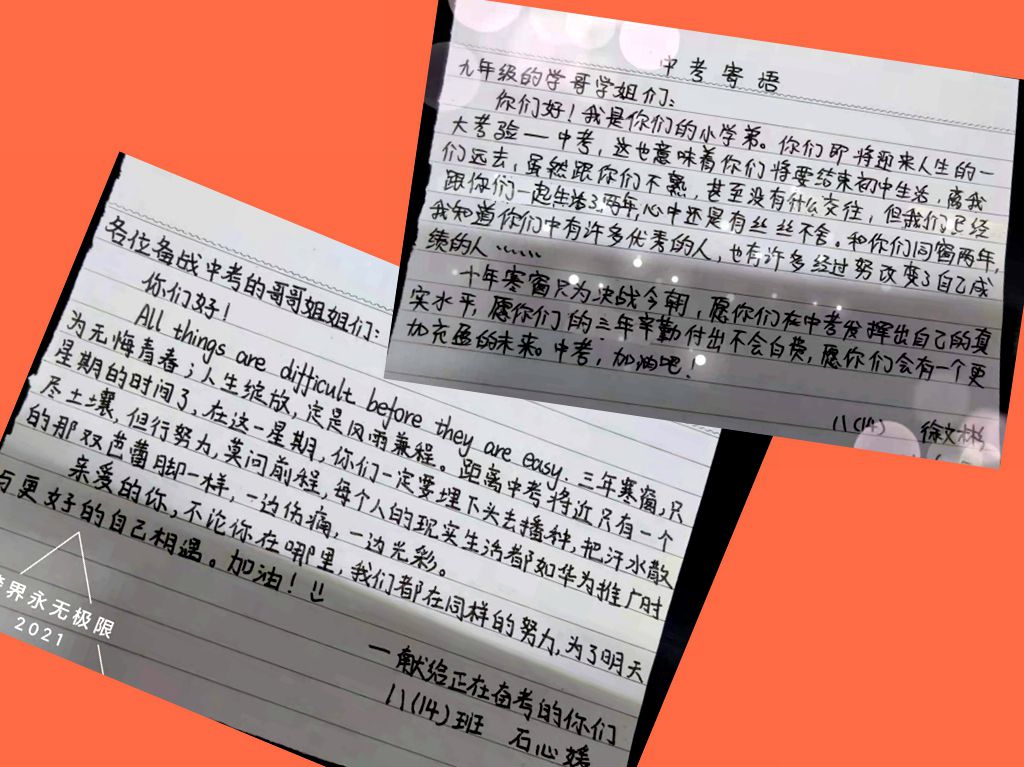 中考寄语
九年级的学哥学姐们:
你们好！我是你们的小学弟。你们即将迎来人生的一
大考验一中考，这也意味着你们将要结束初中生活，离我
们远去，虽然跟你们不熟，甚至没有什么交往，但我们已经
跟你们一起生活了两年，心中还是有丝丝不舍。和你们同窗两年，
我知道你们中有许多优秀的人，也有许多经过努改变了自己成
绩的人……
十年寒窗只为决战今朝，愿你们在中考发挥出自己的真
实水平，愿你们的三年辛勤付出不会白费，愿你们会有一个更
加充盈的未来。中考，加油吧！
八(14) 徐文彬
各位备战中考的哥哥姐姐们:
你们好！
All things are difficult before they are easy. 三年寒窗，只
为无悔青春；人生绽放，定是风雨兼程。距离中考将近只有一个
星期的时间了，在这一星期，你们一定要埋下头去播种，把汗水散
尽土壤，但行努力，莫问前程，每个人的现实生活都如华为推广时
的那双芭蕾脚一样，一边伤痛，一边光彩。
亲爱的你，不论你在哪里，我们都在同样的努力，为了明天
与更好的自己相遇。加油！
一献给正在奋考的你们
八(14)班 石心媛
界永无极限
2021